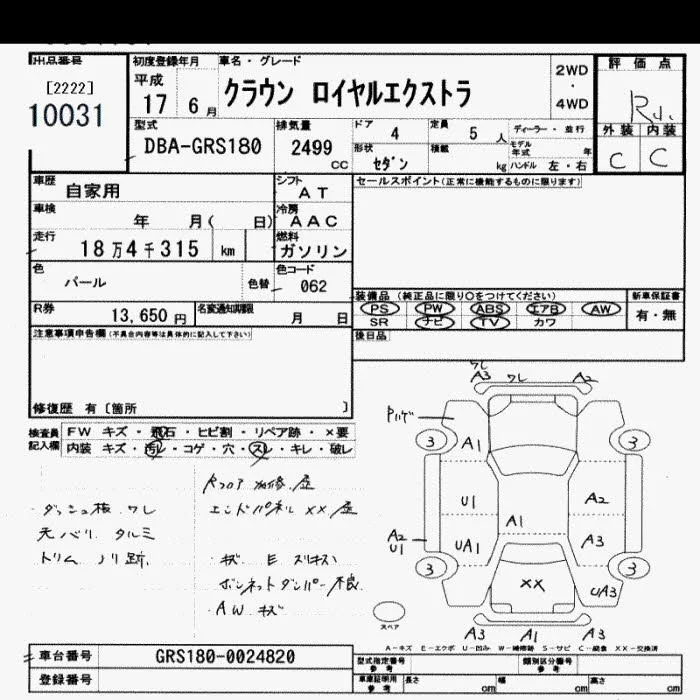 出品番号
[2222]
10031
初度登録年月
平成
17 6月
車名・グレード
クラウン ロイヤルエクストラ
2WD
・
4WD
評価点
R
外装 内装
C C
型式
DBA-GRS180
排気量
2499
CC
ドア 4
定員 5 人
ディーラー・並行
形状
セダン
積載
kg
モデル年式 年
ハンドル 左・右
車歴
自家用
シフト
AT
車検
年 月( 日)
冷房
AAC
走行
18万4千315 km
燃料
ガソリン
色
パール
色替
色コード
062
R券
13,650円
名変通知期限
月 日
セールスポイント(正常に機能するものに限ります)
装備品 (純正品に限り○をつけてください)
新車保証書
PS PW ABS エアB AW
SR ナビ TV カワ
有・無
後日品
注意事項申告欄(不具合内容等は具体的に記入して下さい)
修復歴 有〔箇所 〕
検査員記入欄
FW キズ・飛石・ヒビ割・リペア跡・×要
内装 キズ・汚レ・コゲ・穴・スレ・キレ・破レ
ダッシュ板 ワレ
天バリ タルミ
トリム ノリ跡
Rフロア 補修歴
エンドパネル XX歴
キズ E スリキズ
ボンネットダンパー不良
AW キズ
ワレ
A3 ワレ A2
Pハゲ
3 A1 3
U1 A2
A1
A2
U1
UA1 A3
3 XX 3
UA3
スペア
A3 A1 A3
A－キズ E－エクボ U－凹み W－補修跡 S－サビ C－腐食 XX－交換済
車台番号
GRS180-0024820
登録番号
型式指定番号
参考
類別区分番号
参考
車庫証明用
参考
長さ cm 幅 cm 高さ cm